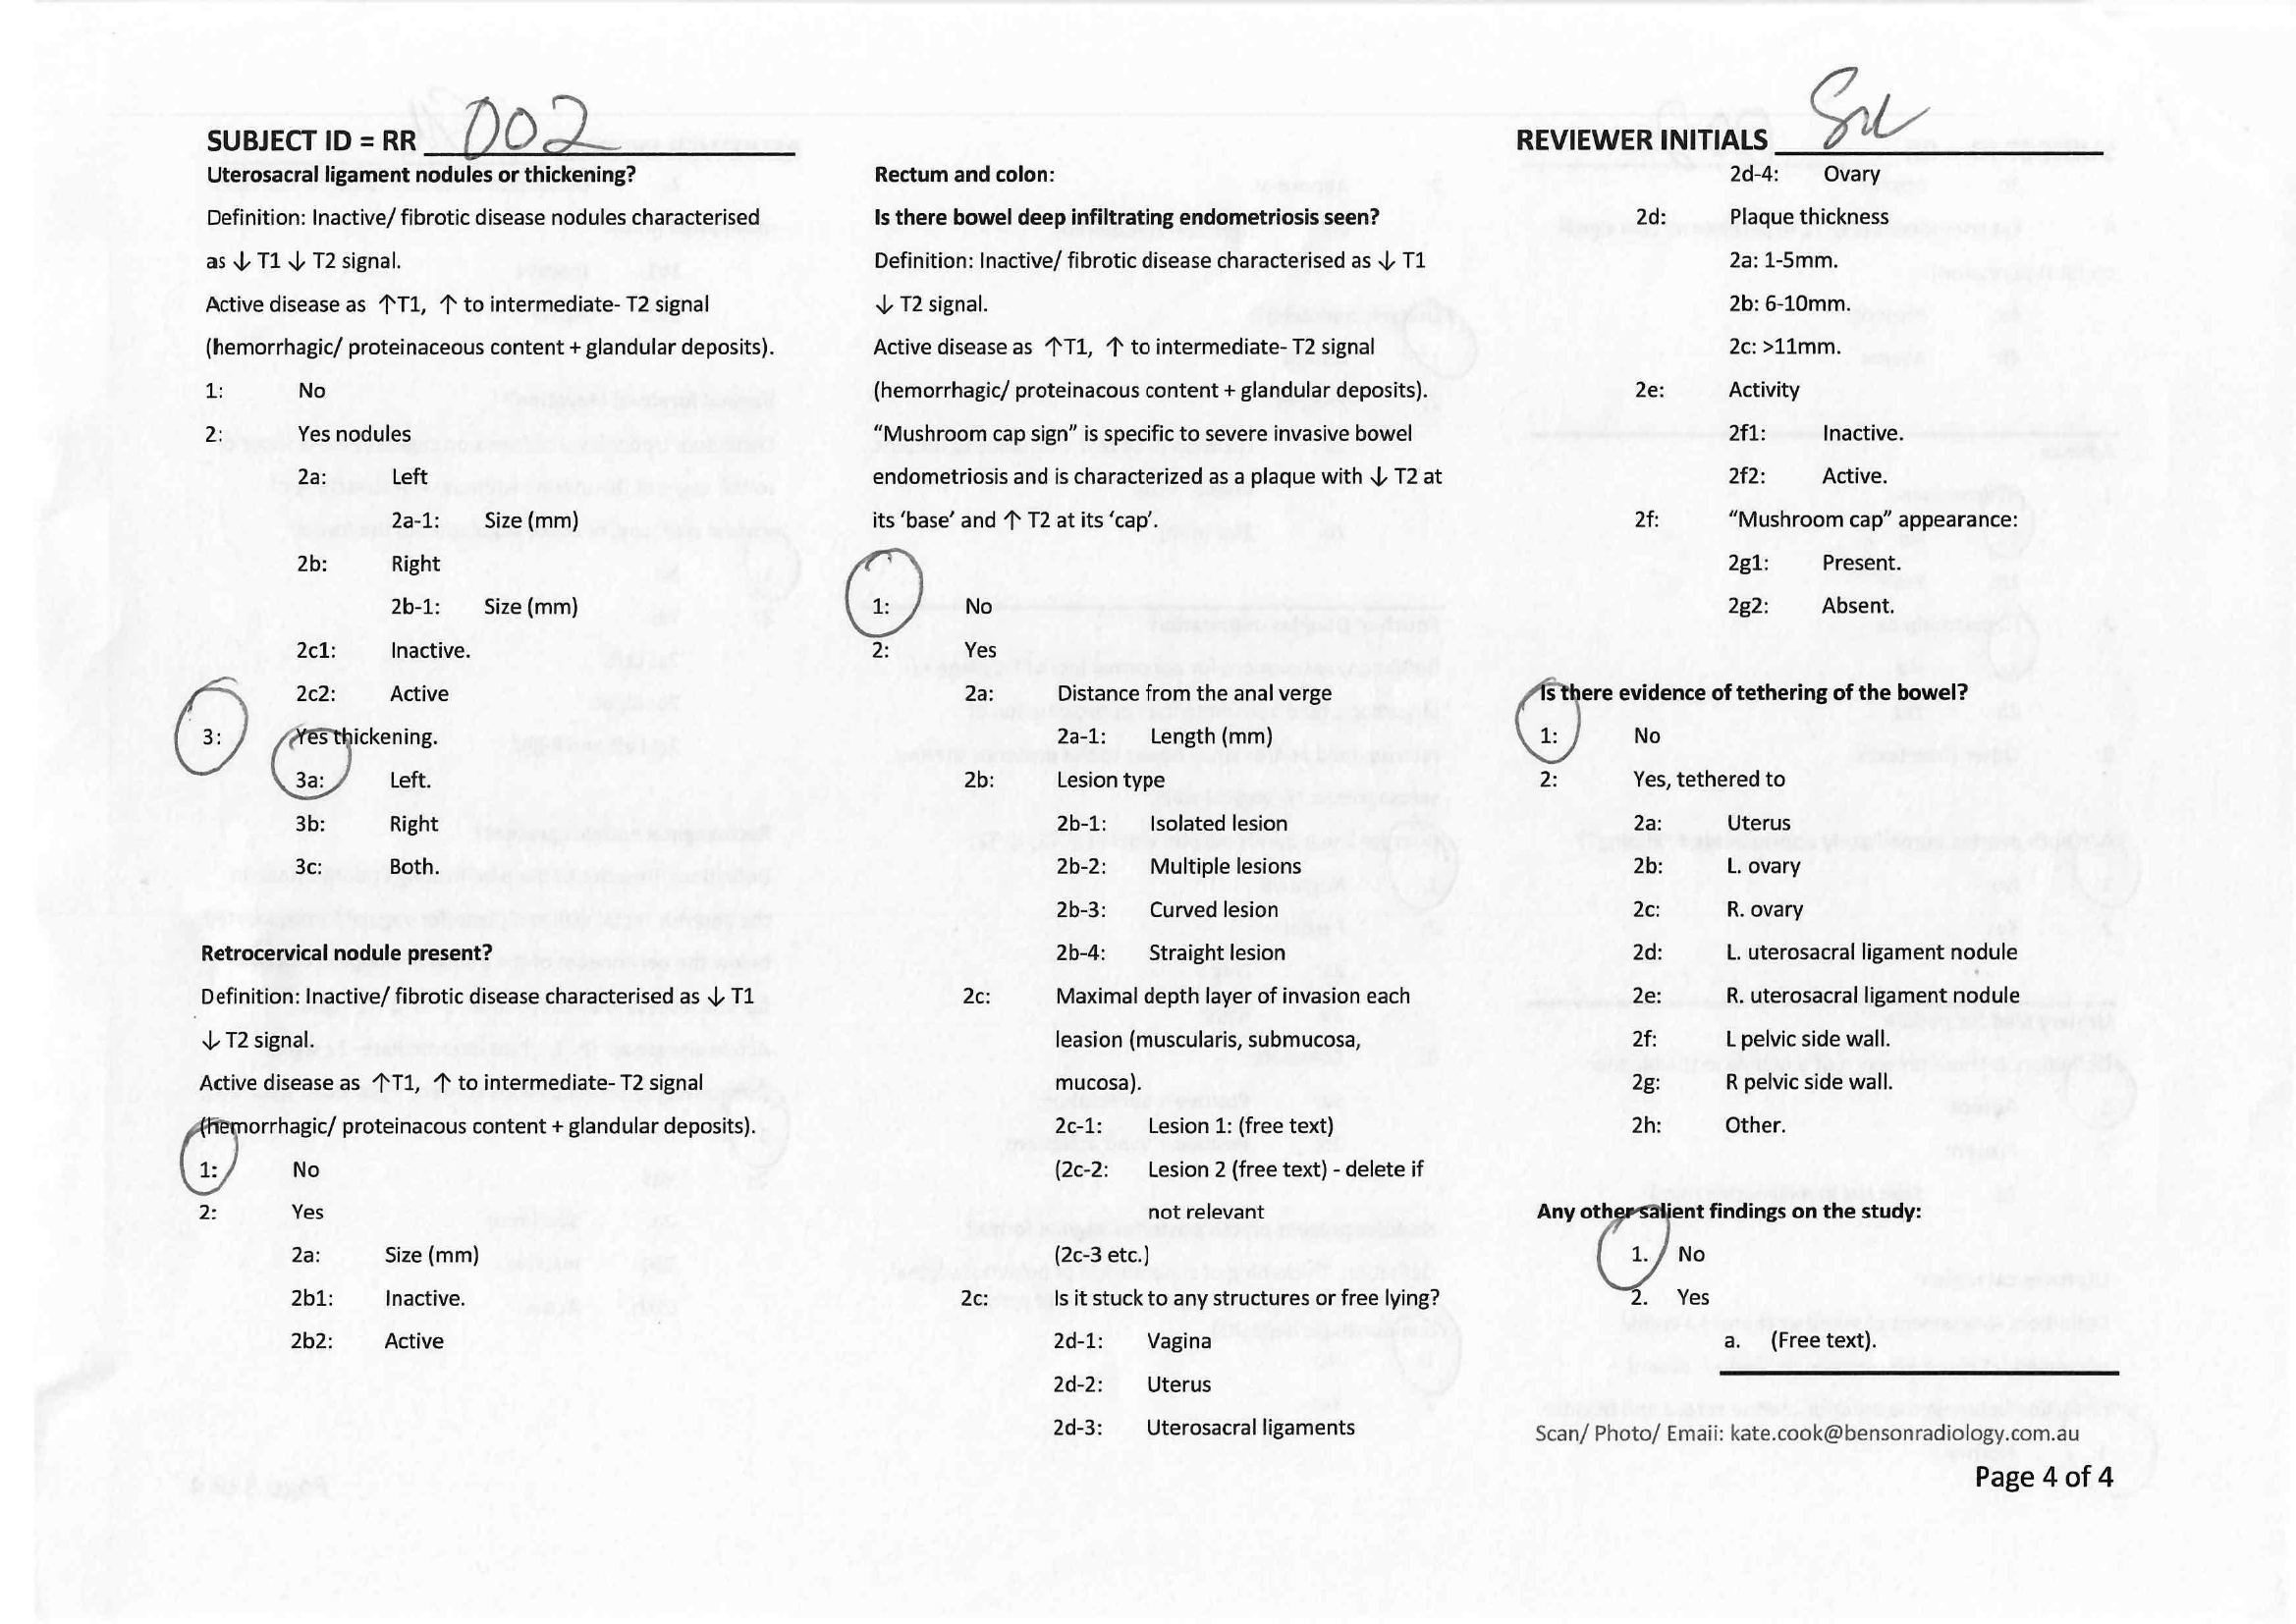 SUBJECT ID = RR 002
Uterosacral ligament nodules or thickening?
Definition: Inactive/ fibrotic disease nodules characterised
as ↓ T1 ↓ T2 signal.
Active disease as ↑T1, ↑ to intermediate- T2 signal
(hemorrhagic/ proteinaceous content + glandular deposits).
1: No
2: Yes nodules
2a: Left
2a-1: Size (mm)
2b: Right
2b-1: Size (mm)
2c1: Inactive.
2c2: Active
3: Yes thickening.
3a: Left.
3b: Right
3c: Both.
Retrocervical nodule present?
Definition: Inactive/ fibrotic disease characterised as ↓ T1
↓ T2 signal.
Active disease as ↑T1, ↑ to intermediate- T2 signal
(hemorrhagic/ proteinacous content + glandular deposits).
1: No
2: Yes
2a: Size (mm)
2b1: Inactive.
2b2: Active
Rectum and colon:
Is there bowel deep infiltrating endometriosis seen?
Definition: Inactive/ fibrotic disease characterised as ↓ T1
↓ T2 signal.
Active disease as ↑T1, ↑ to intermediate- T2 signal
(hemorrhagic/ proteinacous content + glandular deposits).
“Mushroom cap sign” is specific to severe invasive bowel
endometriosis and is characterized as a plaque with ↓ T2 at
its ‘base’ and ↑ T2 at its ‘cap’.
1: No
2: Yes
2a: Distance from the anal verge
2a-1: Length (mm)
2b: Lesion type
2b-1: Isolated lesion
2b-2: Multiple lesions
2b-3: Curved lesion
2b-4: Straight lesion
2c: Maximal depth layer of invasion each
leasion (muscularis, submucosa,
mucosa).
2c-1: Lesion 1: (free text)
(2c-2: Lesion 2 (free text) - delete if
not relevant
(2c-3 etc.)
2c: Is it stuck to any structures or free lying?
2d-1: Vagina
2d-2: Uterus
2d-3: Uterosacral ligaments
REVIEWER INITIALS
2d-4: Ovary
2d: Plaque thickness
2a: 1-5mm.
2b: 6-10mm.
2c: >11mm.
2e: Activity
2f1: Inactive.
2f2: Active.
2f: “Mushroom cap” appearance:
2g1: Present.
2g2: Absent.
Is there evidence of tethering of the bowel?
1: No
2: Yes, tethered to
2a: Uterus
2b: L. ovary
2c: R. ovary
2d: L. uterosacral ligament nodule
2e: R. uterosacral ligament nodule
2f: L pelvic side wall.
2g: R pelvic side wall.
2h: Other.
Any other salient findings on the study:
1. No
2. Yes
a. (Free text).
Scan/ Photo/ Email: kate.cook@bensonradiology.com.au
Page 4 of 4